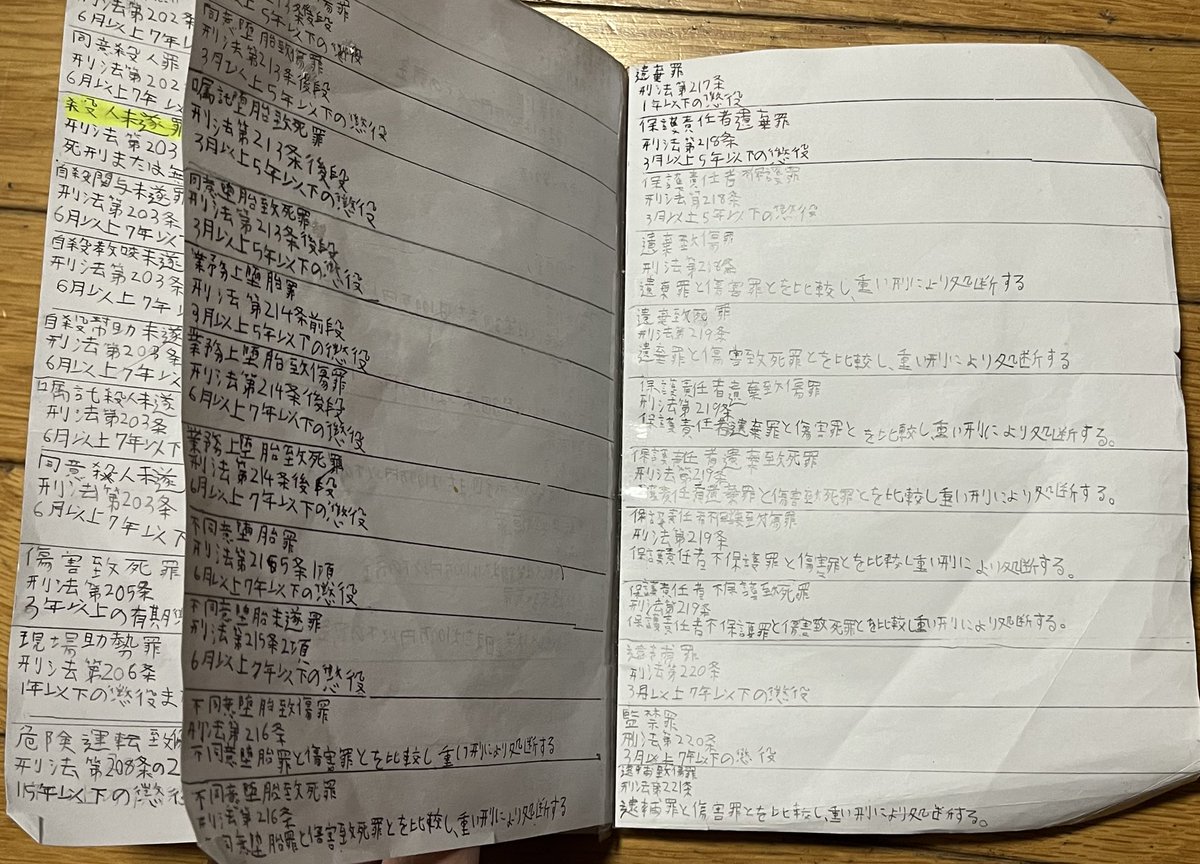 刑法第202条
6月以上7年以
同意殺人罪
刑法第202
6月以上7年以
殺人未遂罪
刑法第203
死刑または無
自殺関与未遂罪
刑法第203条
6月以上7年以
自殺教唆未遂
刑法第203条
6月以上7年
自殺幇助未遂
刑法第203条
6月以上7年以
嘱託殺人未遂
刑法第203条
6月以上7年以下
同意殺人未遂
刑法第203条
6月以上7年以下
傷害致死罪
刑法第205条
3年以上の有期懲
現場助勢罪
刑法第206条
1年以下の懲役ま
危険運転致
刑法第208条の2
15年以下の懲役
3月以上5年以下の懲役
同意堕胎致傷罪
刑法第213条後段
3月以上5年以下の懲役
嘱託堕胎致死罪
刑法第213条後段
3月以上5年以下の懲役
同意堕胎致死罪
刑法第213条後段
3月以上5年以下の懲役
業務上堕胎罪
刑法第214条前段
3月以上5年以下の懲役
業務上堕胎致傷罪
刑法第214条後段
6月以上7年以下の懲役
業務上堕胎致死罪
刑法第214条後段
6月以上7年以下の懲役
不同意堕胎罪
刑法第215条1項
6月以上7年以下の懲役
不同意堕胎未遂罪
刑法第215条2項
6月以上7年以下の懲役
不同意堕胎致傷罪
刑法第216条
不同意堕胎罪と傷害罪とを比較し、重い刑により処断する
不同意堕胎致死罪
刑法第216条
不同意堕胎罪と傷害致死罪とを比較し、重い刑により処断する
遺棄罪
刑法第217条
1年以下の懲役
保護責任者遺棄罪
刑法第218条
3月以上5年以下の懲役
保護責任者不保護罪
刑法第218条
3月以上5年以下の懲役
遺棄致傷罪
刑法第218条
遺棄罪と傷害罪とを比較し、重い刑により処断する
遺棄致死罪
刑法第219条
遺棄罪と傷害致死罪とを比較し、重い刑により処断する
保護責任者遺棄致傷罪
刑法第219条
保護責任者遺棄罪と傷害罪とを比較し、重い刑により処断する。
保護責任者遺棄致死罪
刑法第219条
保護責任者遺棄罪と傷害致死罪とを比較し重い刑により処断する。
保護責任者不保護致傷罪
刑法第219条
保護責任者不保護罪と傷害罪とを比較し重い刑により処断する。
保護責任者不保護致死罪
刑法第219条
保護責任者不保護罪と傷害致死罪とを比較し、重い刑により処断する。
逮捕罪
刑法第220条
3月以上7年以下の懲役
監禁罪
刑法第220条
3月以上7年以下の懲役
逮捕致傷罪
刑法第221条
逮捕罪と傷害罪とを比較し、重い刑により処断する。